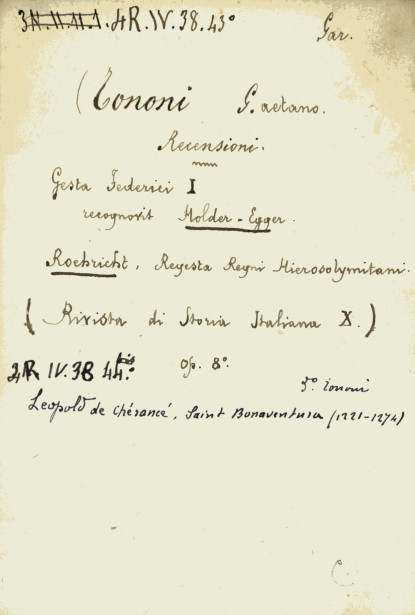 4R. IV. 38. 43°
Gar.
(Tononi G. aetano.
Recensioni.
Gesta Federici I
recognovit Holder-Egger.
Roehricht, Regesta Regni Hierosolymitani.
(Rivista di Storia Italiana X.)
Op. 8°.
4R IV. 38 44 bis
3° Tononi
Leopold de Chérancé, Saint Bonaventura (1221-1274)